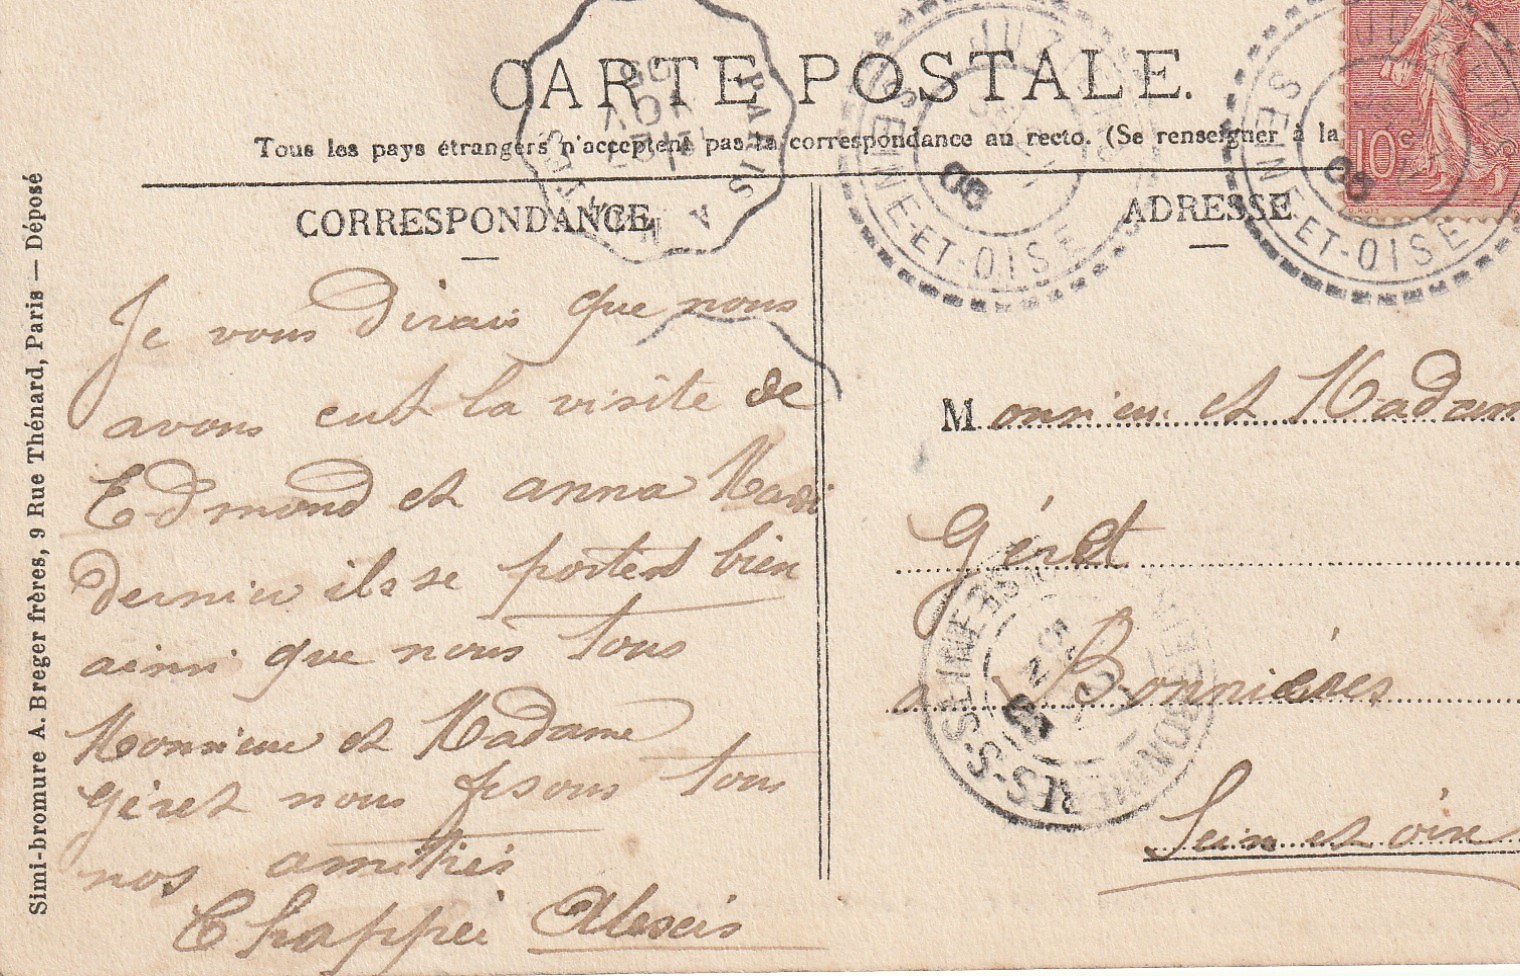 CARTE POSTALE.
Tous les pays étrangers n'acceptent pas la correspondance au recto. (Se renseigner à la
CORRESPONDANCE
ADRESSE
Je vous dirais que nous
avons eut la visite de
Edmond et anna Mardi
dernier ils se portent bien
ainsi que nous tous
Monsieur et Madame
Géret nous tous
nos amitiés
Chappéi Alexis
Monsieur et Madam
Géret
a Bonnières
Sein et oise
Simi-bromure A. Breger frères, 9 Rue Thénard, Paris — Déposé
PARIS A
JUZIERS
SEINE-ET-OISE
08
JUZIERS
SEINE-ET-OISE
08
10c
BONNIÈRES-S-SEINE